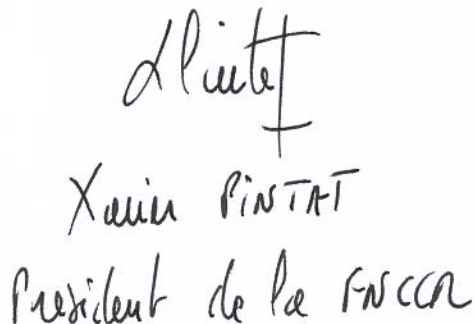 Xavier PINTAT
Président de la FNCCR